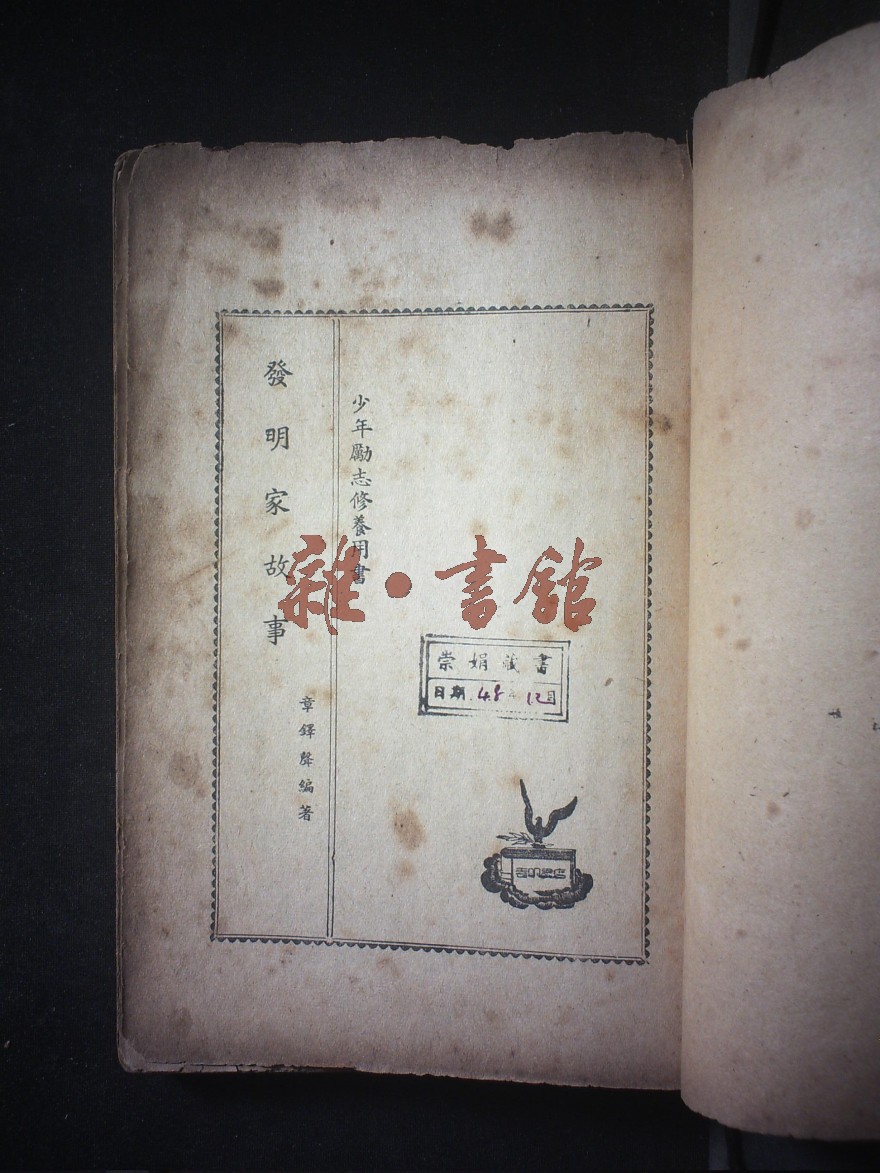 少年勵志修養用書
發明家故事
章鐸聲編著
雜·書館
崇娟藏書
日期 48年12月